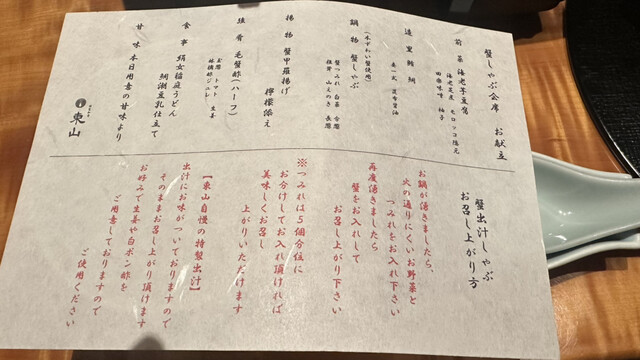 蟹しゃぶ会席　お献立
前菜　海老芋豆腐
海老芝煮　モロッコ隠元
田楽味噌　柚子
造里　鮪　鯛
あしらい一式　昆布醤油
鍋物　蟹しゃぶ
(本ずわい蟹使用)
蟹つみれ　白菜　春菊
椎茸　山えのき　長葱
揚物　蟹甲羅揚げ
檸檬添え
強肴　毛蟹酢(ハーフ)
トマト　生姜
食事　絹女稲庭うどん
胡麻豆乳仕立て
甘味　本日用意の甘味より
東山
蟹出汁しゃぶ
お召し上がり方
お鍋が湧きましたら、
火の通りにくいお野菜と
つみれをお入れ下さい
再度湧きましたら
蟹をお入れして
お召し上がり下さい
※つみれは5個分位に
お分けしてお入れ頂ければ
美味しくお召し
上がりいただけます
【東山自慢の特製出汁】
出汁にお味がついておりますので
そのままお召し上がり頂けます
お好みで生姜や白ポン酢を
ご用意しておりますので
ご使用ください